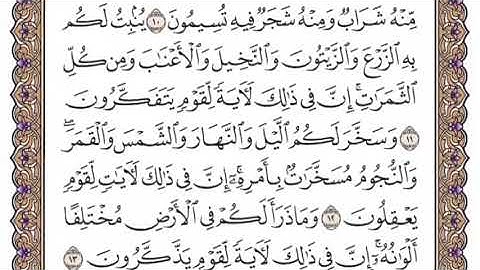 مِّنْهُ شَرَابٌ وَمِنْهُ شَجَرٌ فِيهِ تُسِيمُونَ ۝١٠ يُنۢبِتُ لَكُم
بِهِ ٱلزَّرْعَ وَٱلزَّيْتُونَ وَٱلنَّخِيلَ وَٱلْأَعْنَٰبَ وَمِن كُلِّ
ٱلثَّمَرَٰتِ ۗ إِنَّ فِى ذَٰلِكَ لَءَايَةً لِّقَوْمٍ يَتَفَكَّرُونَ
۝١١ وَسَخَّرَ لَكُمُ ٱلَّيْلَ وَٱلنَّهَارَ وَٱلشَّمْسَ وَٱلْقَمَرَ ۖ
وَٱلنُّجُومُ مُسَخَّرَٰتٌۢ بِأَمْرِهِۦٓ ۗ إِنَّ فِى ذَٰلِكَ لَءَايَٰتٍ لِّقَوْمٍ
يَعْقِلُونَ ۝١٢ وَمَا ذَرَأَ لَكُمْ فِى ٱلْأَرْضِ مُخْتَلِفًا
أَلْوَٰنُهُۥٓ ۗ إِنَّ فِى ذَٰلِكَ لَءَايَةً لِّقَوْمٍ يَذَّكَّرُونَ ۝١٣